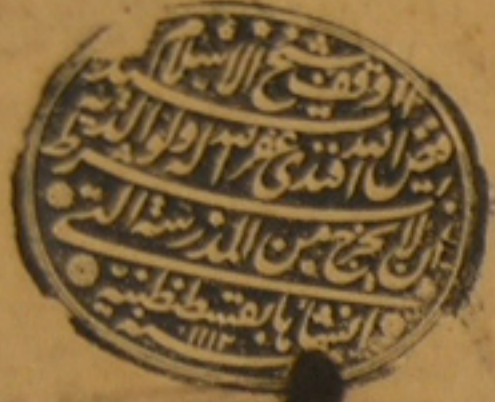 وقف شيخ الاسلام السيد
فيض الله افندى غفر الله له ولوالديه بشرط
ان لا يخرج من المدرسة التى
انشاها بقسطنطنية
سنة ١١١٢